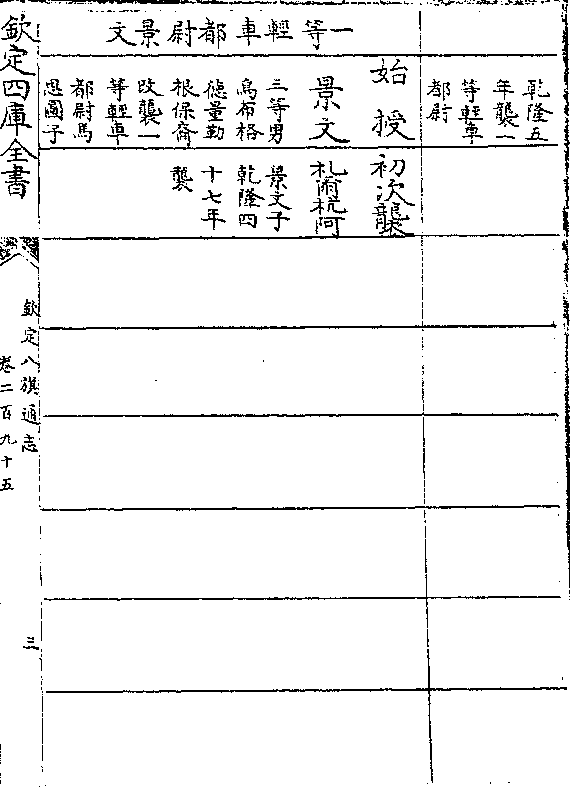 乾隆五
年襲一
等輕車
都尉
一等輕車都尉景文
始授
初次襲
景文
札爾杭阿
三等男
烏布格
德量勤
根保裔
改襲一
等輕車
都尉馬
思圖子
景文子
乾隆四
十七年
襲
欽定四庫全書
欽定八旗通志
卷二百九十五
三